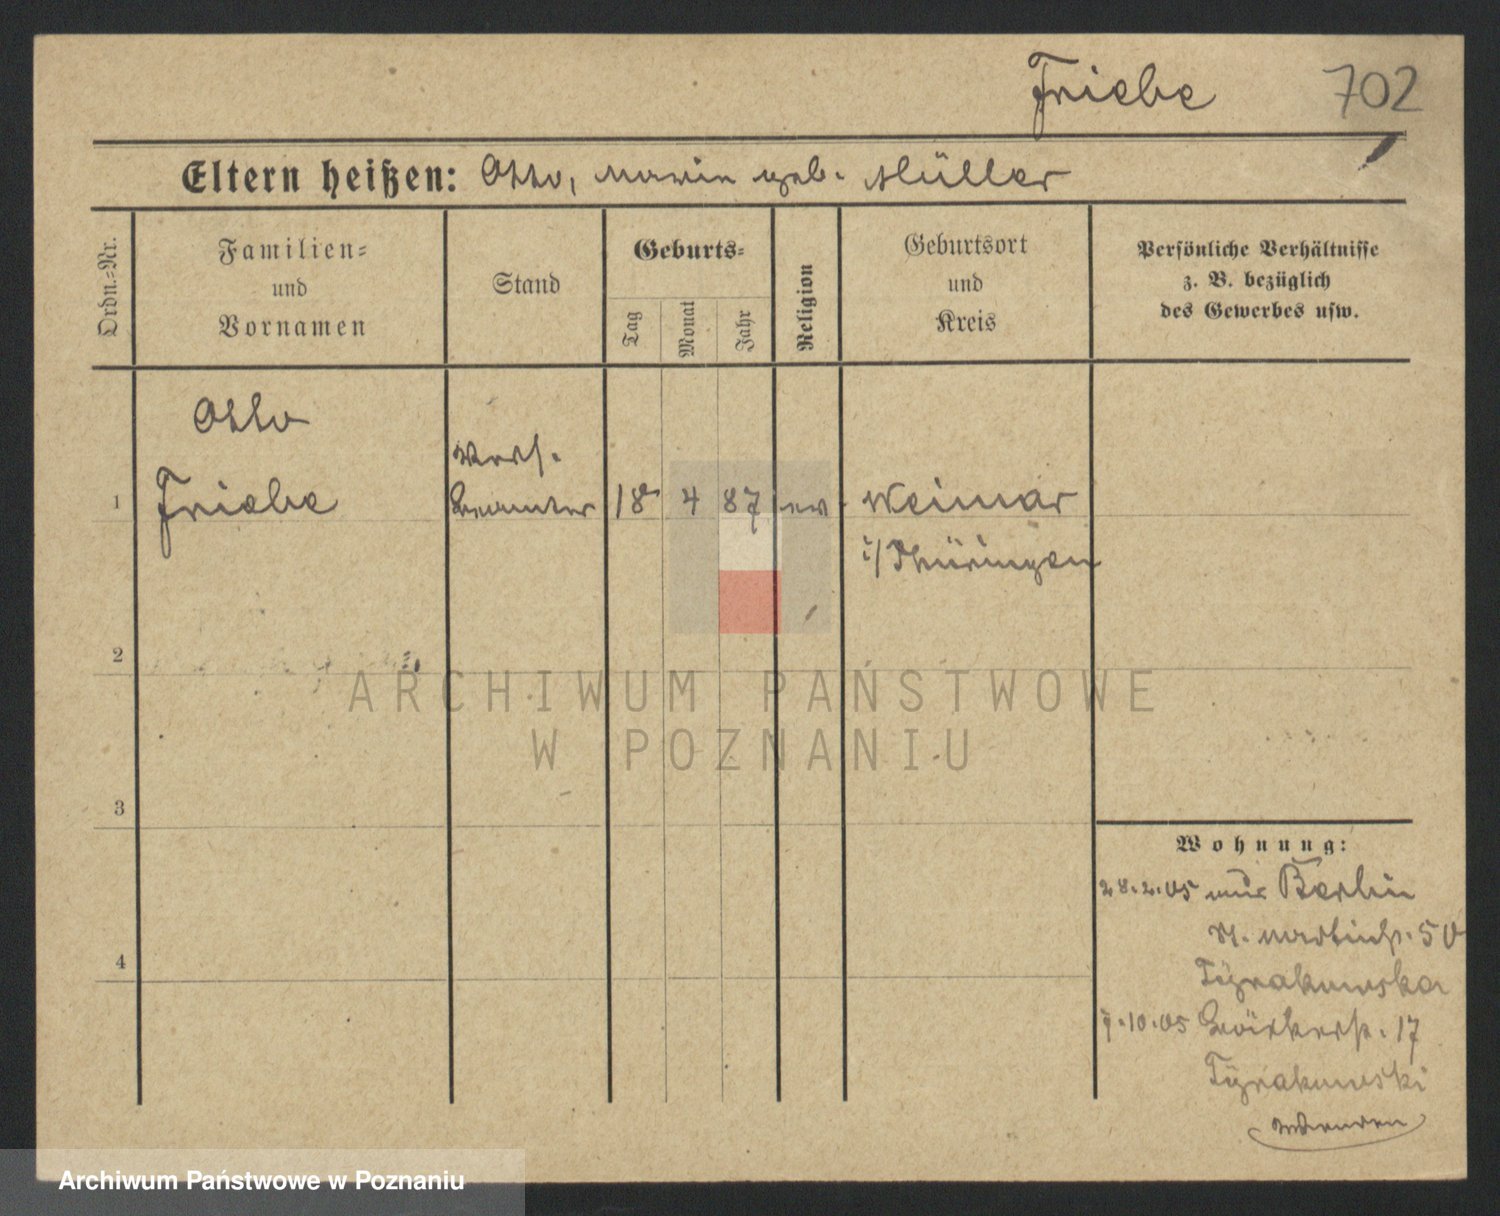 Friebe 702
Eltern heißen: Otto, Marie geb. Müller
Ordn.-Nr.
Familien-
und
Vornamen
Stand
Geburts-
Tag
Monat
Jahr
Religion
Geburtsort
und
Kreis
Persönliche Verhältnisse
z. B. bezüglich
des Gewerbes usw.
Otto
Vers.
1 Friebe Beamter 18 4 87 ev. Weimar
i/Thüringen
2
ARCHIWUM PAŃSTWOWE
W POZNANIU
3
Wohnung:
28.2.05 aus Berlin
St. Martinstr. 50
4
Tyrakowska
7.10.05 Bäckerstr. 17
Tyrakowski
wenden
Archiwum Państwowe w Poznaniu